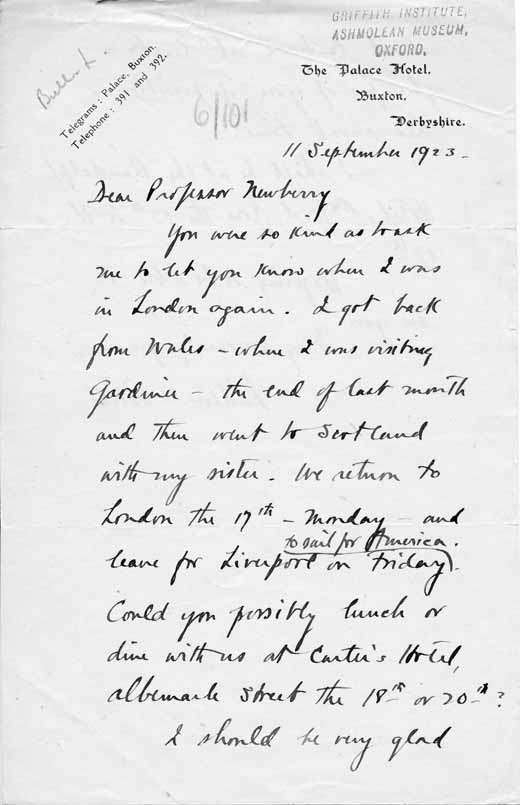 GRIFFITH INSTITUTE,
ASHMOLEAN MUSEUM,
OXFORD.
Bull. L.
Telegrams: Palace, Buxton.
Telephone: 391 and 392.
6/101
The Palace Hotel,
Buxton,
Derbyshire.
11 September 1923 -
Dear Professor Newberry
You were so kind as to ask
me to let you know when I was
in London again. I got back
from Wales - where I was visiting
Gardiner - the end of last month
and then went to Scotland
with my sister. We return to
London the 17th - Monday - and
to sail for America.
leave for Liverpool on Friday.
Could you possibly lunch or
dine with us at Carter's Hotel,
Albemarle Street the 18th or 20th?
I should be very glad